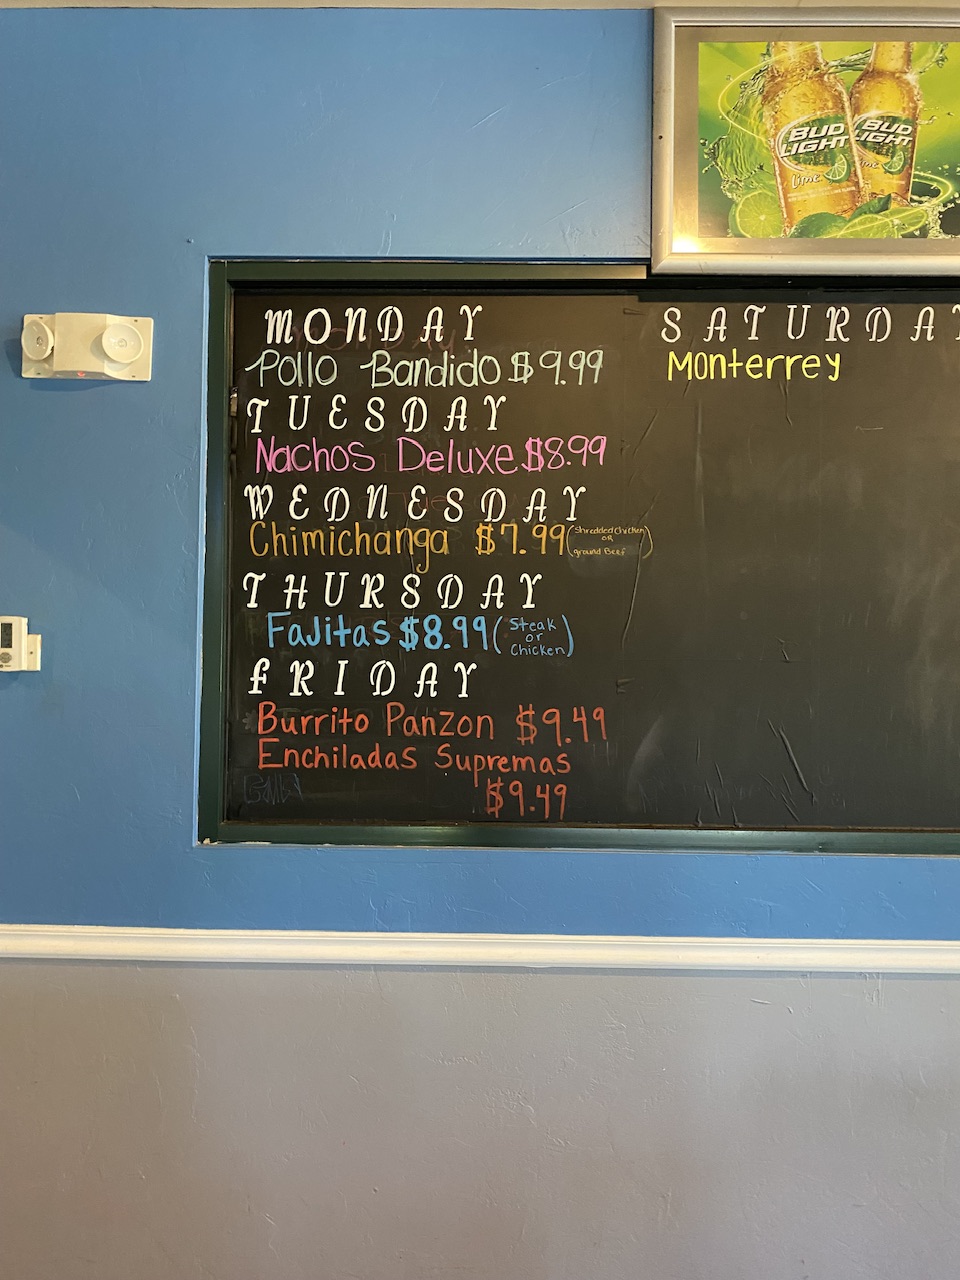 BUD LIGHT
Lime
BUD LIGHT
MONDAY
Pollo Bandido $9.99
TUESDAY
Nachos Deluxe $8.99
WEDNESDAY
Chimichanga $7.99 (Shredded Chicken OR ground Beef)
THURSDAY
FaJitas $8.99 (Steak or Chicken)
FRIDAY
Burrito Panzon $9.49
Enchiladas Supremas
$9.49
SATURDAY
Monterrey